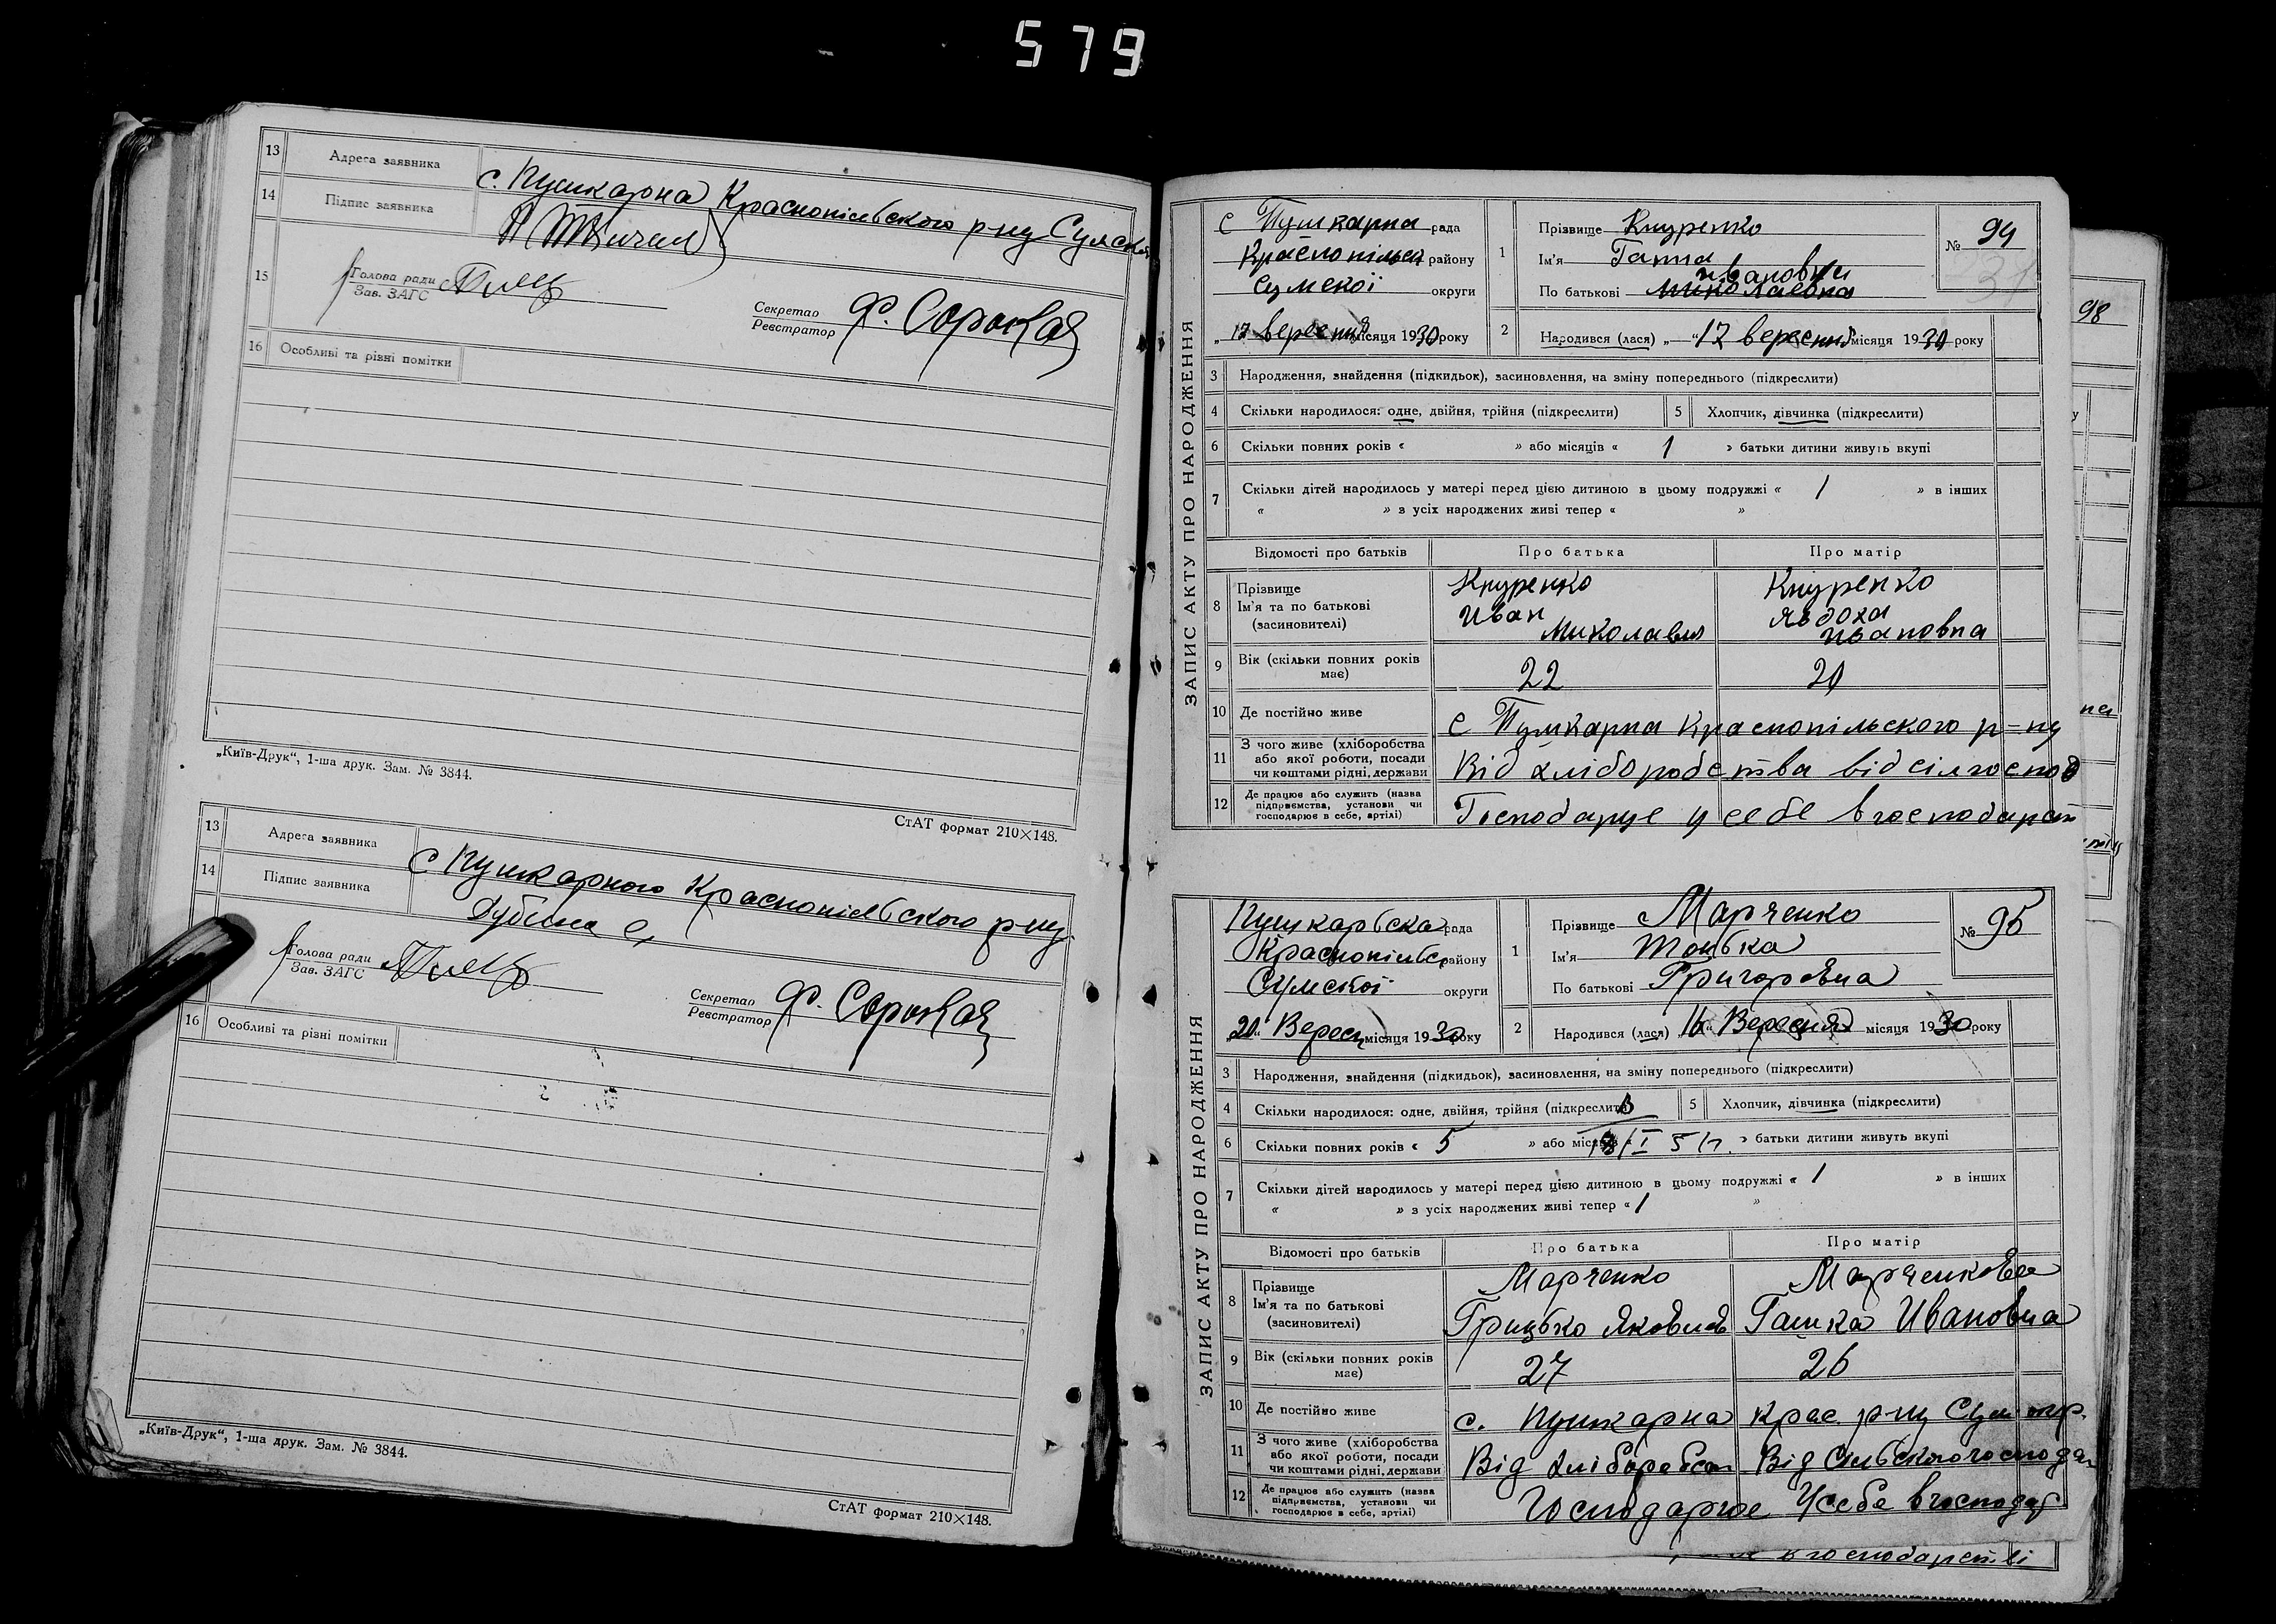 579
13 Адреса заявника с. Пушкарна Краснопільского р-ну Сумской
14 Підпис заявника
15 Голова ради
Зав. ЗАГС
Секретар
Реєстратор Ф. Сорокая
16 Особливі та різні помітки
„Київ-Друк“, 1-ша друк. Зам. № 3844.
СтАТ формат 210×148.
13 Адреса заявника с Пушкарного Краснопільского р-ну.
14 Підпис заявника Дубина
Голова ради
Зав. ЗАГС
Секретар
Реєстратор Ф. Сорокая
16 Особливі та різні помітки
„Київ-Друк“, 1-ша друк. Зам. № 3844.
СтАТ формат 210×148.
ЗАПИС АКТУ ПРО НАРОДЖЕННЯ
с Пушкарна рада
Краснопільск району
Сумскої округи
„17 вересня місяця 1930 року
1 Прізвище Кнуренко
Ім'я Ганна
Ивановна
По батькові Миколаевна
№ 94
31
2 Народився (лася) „ “17 вересня місяця 1930 року
3 Народження, знайдення (підкидьок), засиновлення, на зміну попереднього (підкреслити)
4 Скільки народилося: одне, двійня, трійня (підкреслити) 5 Хлопчик, дівчинка (підкреслити)
6 Скільки повних років « » або місяців « 1 » батьки дитини живуть вкупі
7 Скільки дітей народилось у матері перед цією дитиною в цьому подружжі « 1 » в інших
« » з усіх народжених живі тепер « »
Відомості про батьків Про батька Про матір
8 Прізвище Кнуренко Кнуренко
Ім'я та по батькові Иван Явдоха
(засиновителі) Миколавич Ивановна
9 Вік (скільки повних років має) 22 20
10 Де постійно живе с Пушкарна Краснопільского р-ну
11 З чого живе (хліборобства
або якої роботи, посади
чи коштами рідні, держави Від хліборобства від сілгоспод
12 Де працює або служить (назва
підприємства, установи чи
господарює в себе, артілі) Господарує у себе в господарст
ЗАПИС АКТУ ПРО НАРОДЖЕННЯ
Пушкарьска рада
Краснопільс району
Сумської округи
„20“ Вересн місяця 1930 року
1 Прізвище Марченко
Ім'я Тонька
По батькові Григоровна
№ 95
2 Народився (лася) „16“ Вересня місяця 1930 року
3 Народження, знайдення (підкидьок), засиновлення, на зміну попереднього (підкреслити)
4 Скільки народилося: одне, двійня, трійня (підкреслити) 5 Хлопчик, дівчинка (підкреслити)
6 Скільки повних років « 5 » або місяців « » батьки дитини живуть вкупі
7 Скільки дітей народилось у матері перед цією дитиною в цьому подружжі « 1 » в інших
« » з усіх народжених живі тепер « 1 »
Відомості про батьків Про батька Про матір
8 Прізвище Марченко Марченкова
Ім'я та по батькові
(засиновителі) Грицько Яковлів Гашка Ивановна
9 Вік (скільки повних років має) 27 26
10 Де постійно живе с. Пушкарна Крас. р-ну Сум окр.
11 З чого живе (хліборобства
або якої роботи, посади
чи коштами рідні, держави Від хліборобст Від Сильскогогосподар
12 Де працює або служить (назва
підприємства, установи чи
господарює в себе, артілі) Господарює Усебе в господар
98
в господарстві